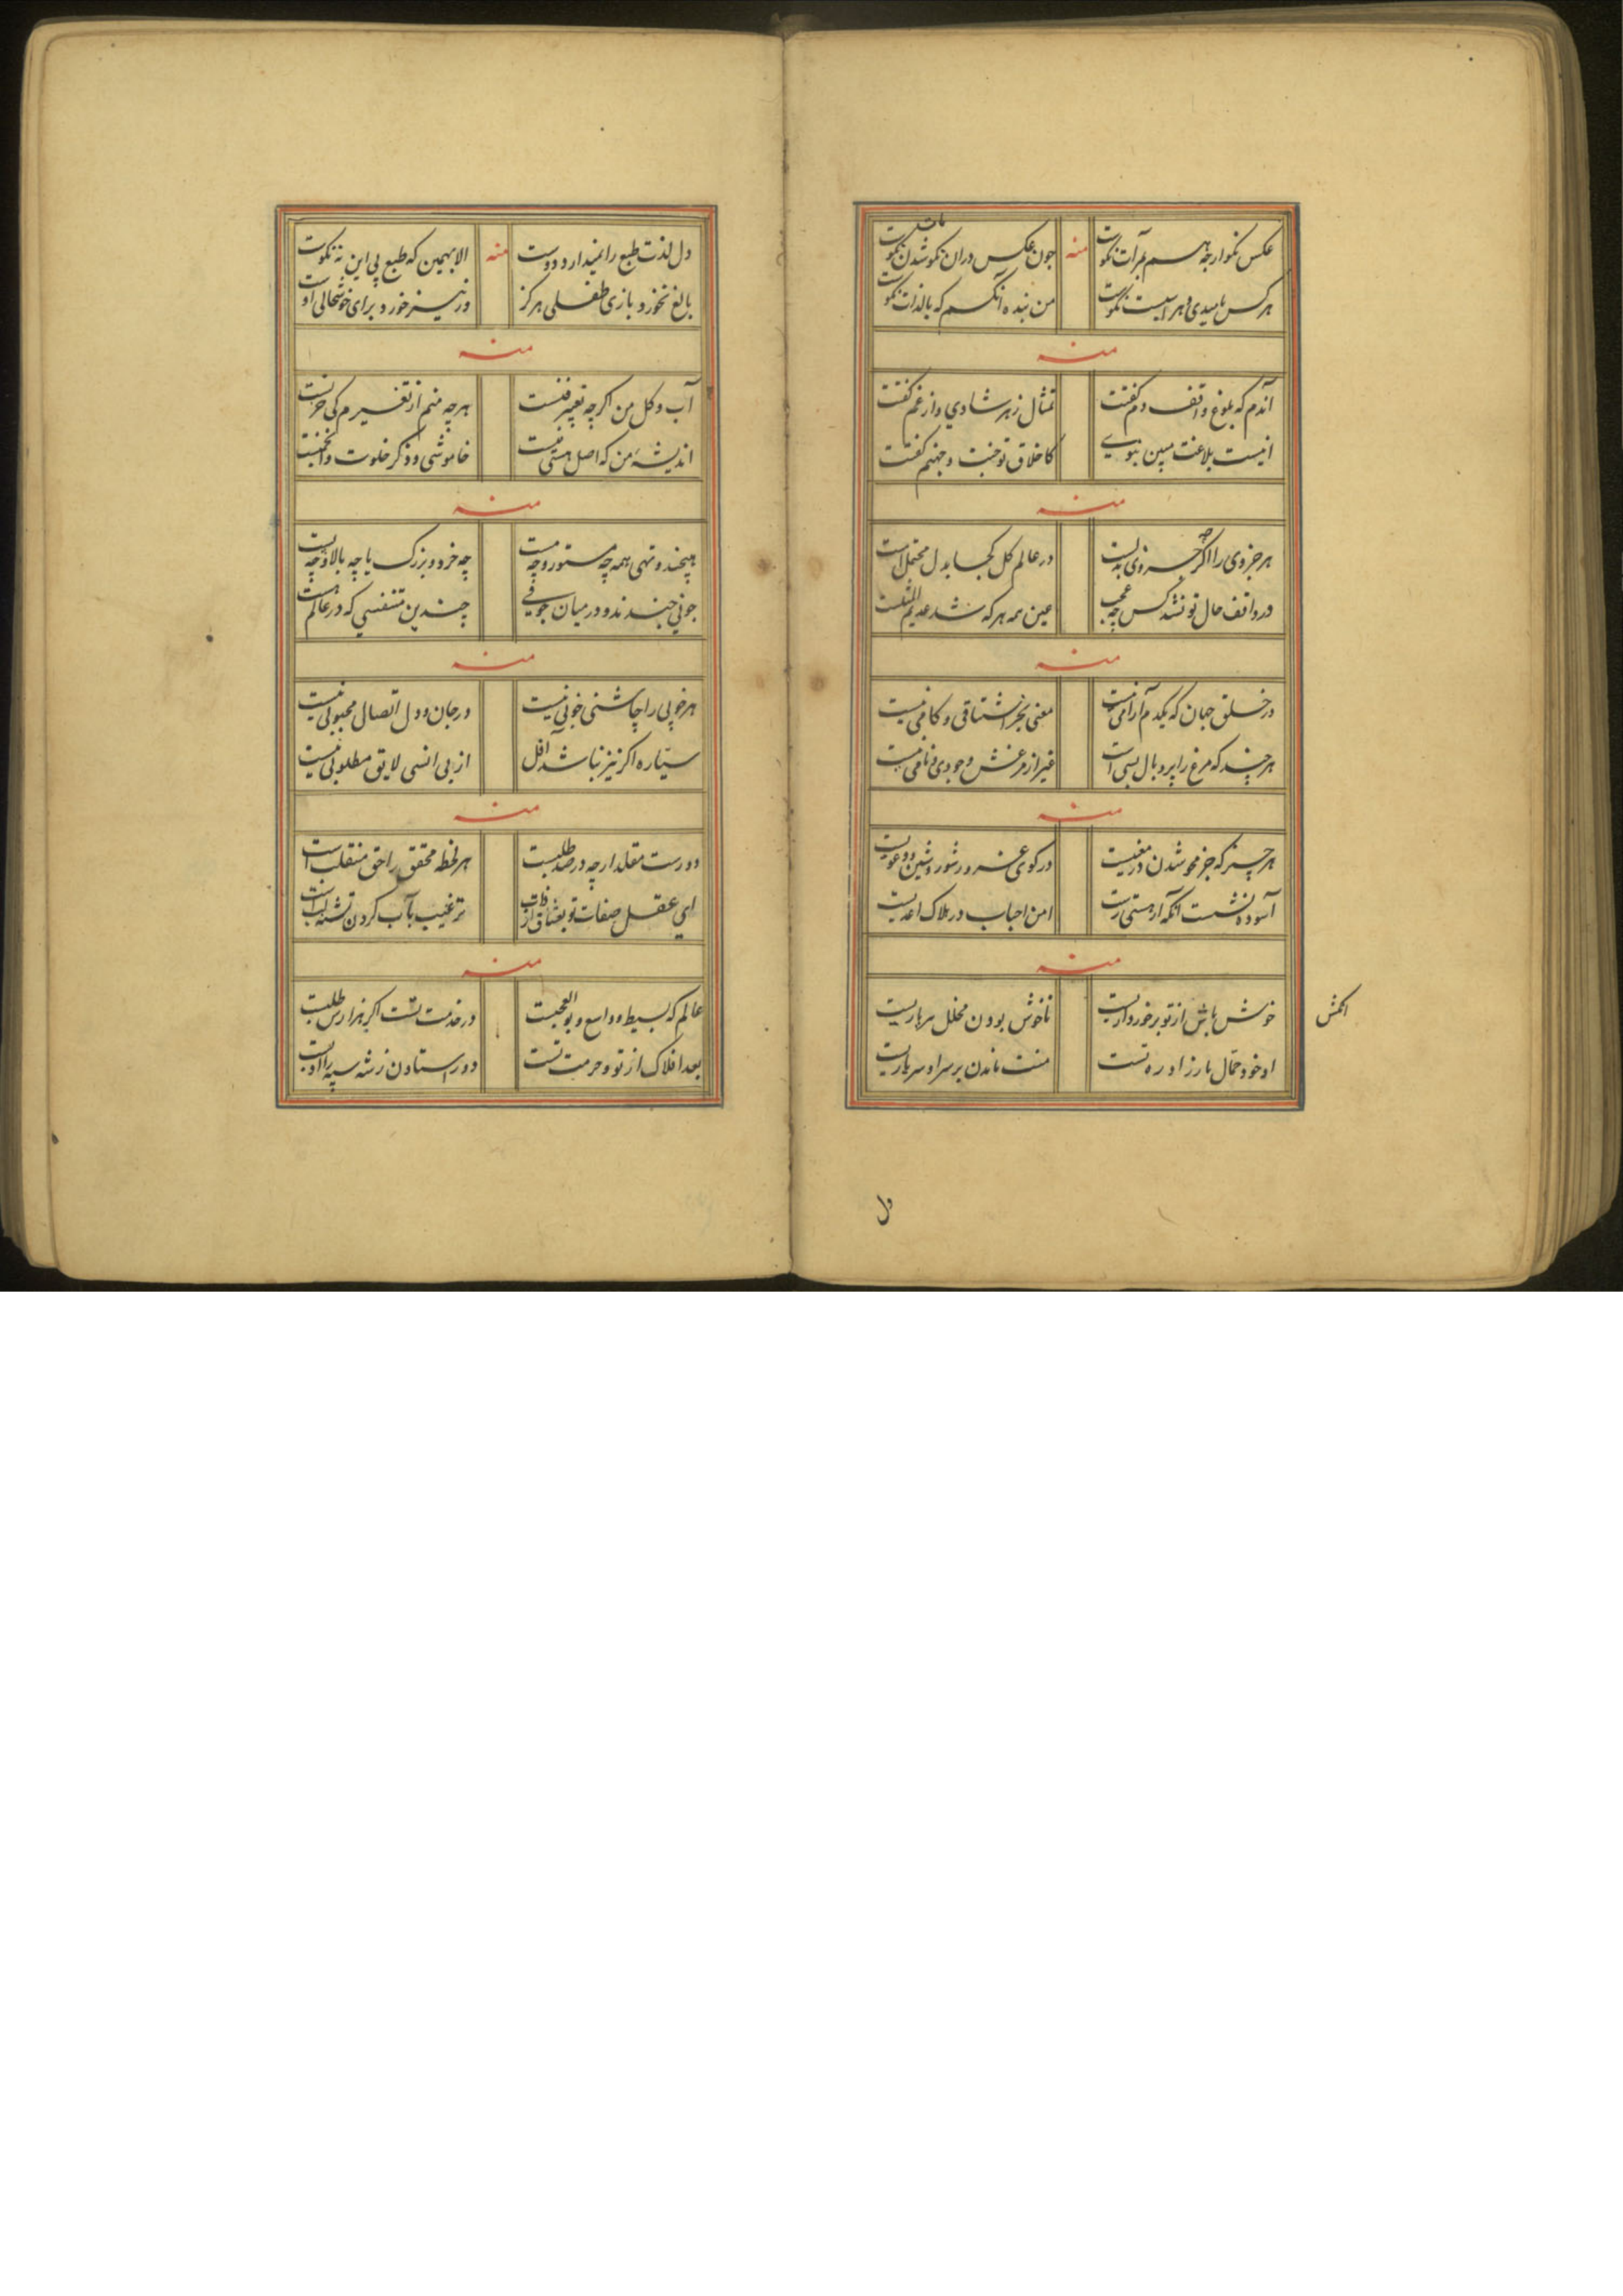 عکس نکو ارچه هم بمرآت نکوست منه چون عکس دران نکو شدن نکوست
هرکس بامیدی و هراسیست نکوست من بنده آنکسم که بالذات نکوست
منه
آندم که بلوغ واقف دم گفتت تمثال ز هر شادی و از غم گفتت
اینست بلاغت مبین نبوی کاخلاق تو جنت و جهنم گفتت
منه
هر جزوی را اگرچه جزوی بدلست در عالم کل کجا بدل محتملست
در واقف حال تو نشد کس چه عجب عین همه هر که شد عدیم المثلست
منه
در خلق جهان که یکدم آرامی نیست معنی بجز اشتاقی و کامی نیست
هرچند که مرغ را پر و بال بسی است غیر از مرغش وجودی و نامی نیست
منه
هر چیز که جز محو شدن در معنیست در کوی غرور شور و شین دعویست
آسوده نشست آنکه از هستی رست امن احباب در هلاک اعدیست
منه
خوش باش از تو برخورداریست ناخوش بودن مخلل سرباریست
او خود حمال بار زاد ره تست منت ماندن بر سر او سرباریست
دل
دل لذت طبع را نمیدارد دوست منه الا بهمین که طبع پی این نه نکوست
بالغ نخورد بازی طفلی هرگز ور نیز خورد برای خوشحالی اوست
منه
آب و گل من اگرچه تعبیر فنیست هرچه منم از تغیرم کی حزنست
اندیشه من که اصل هستی نیست خاموشی و ذکر خلوت و انجمنست
منه
هیچند و تهی همه چه مستور و چه مست چه خرد و بزرگ یا چه بالا و چه پست
جوئی چندند و در میان جوفی چندین متنفسی که در عالم هست
منه
هر خوبی را چاشنی خوبی نیست در جان و دل اتصال محبوبی نیست
سیاره اگر نیز نباشد آفل از بی انسی لایق مطلوبی نیست
منه
دورست مقلد ارچه در صد طلبست هر لحظه محقق را حق منقلب است
ای عقل صفات تو بعشاق از ذات ترغیب بآب کردن تشنه لب است
منه
عالم که بسیط و واسع و بوالعجبست در خدمت تست اگر هزارش طلبست
بعد افلاک از تو و حرمت تست دور استادن ز شه سپه را ادبست